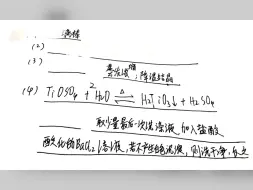 沸腾
(2)
(3) 蒸发浓缩
降温结晶
(4) TiOSO₄ + 2H₂O ⇌ H₂TiO₃↓ + H₂SO₄
取少量最后一次洗涤液加入盐酸
酸化的BaCl₂溶液,若不产生白色沉淀,则洗干净,